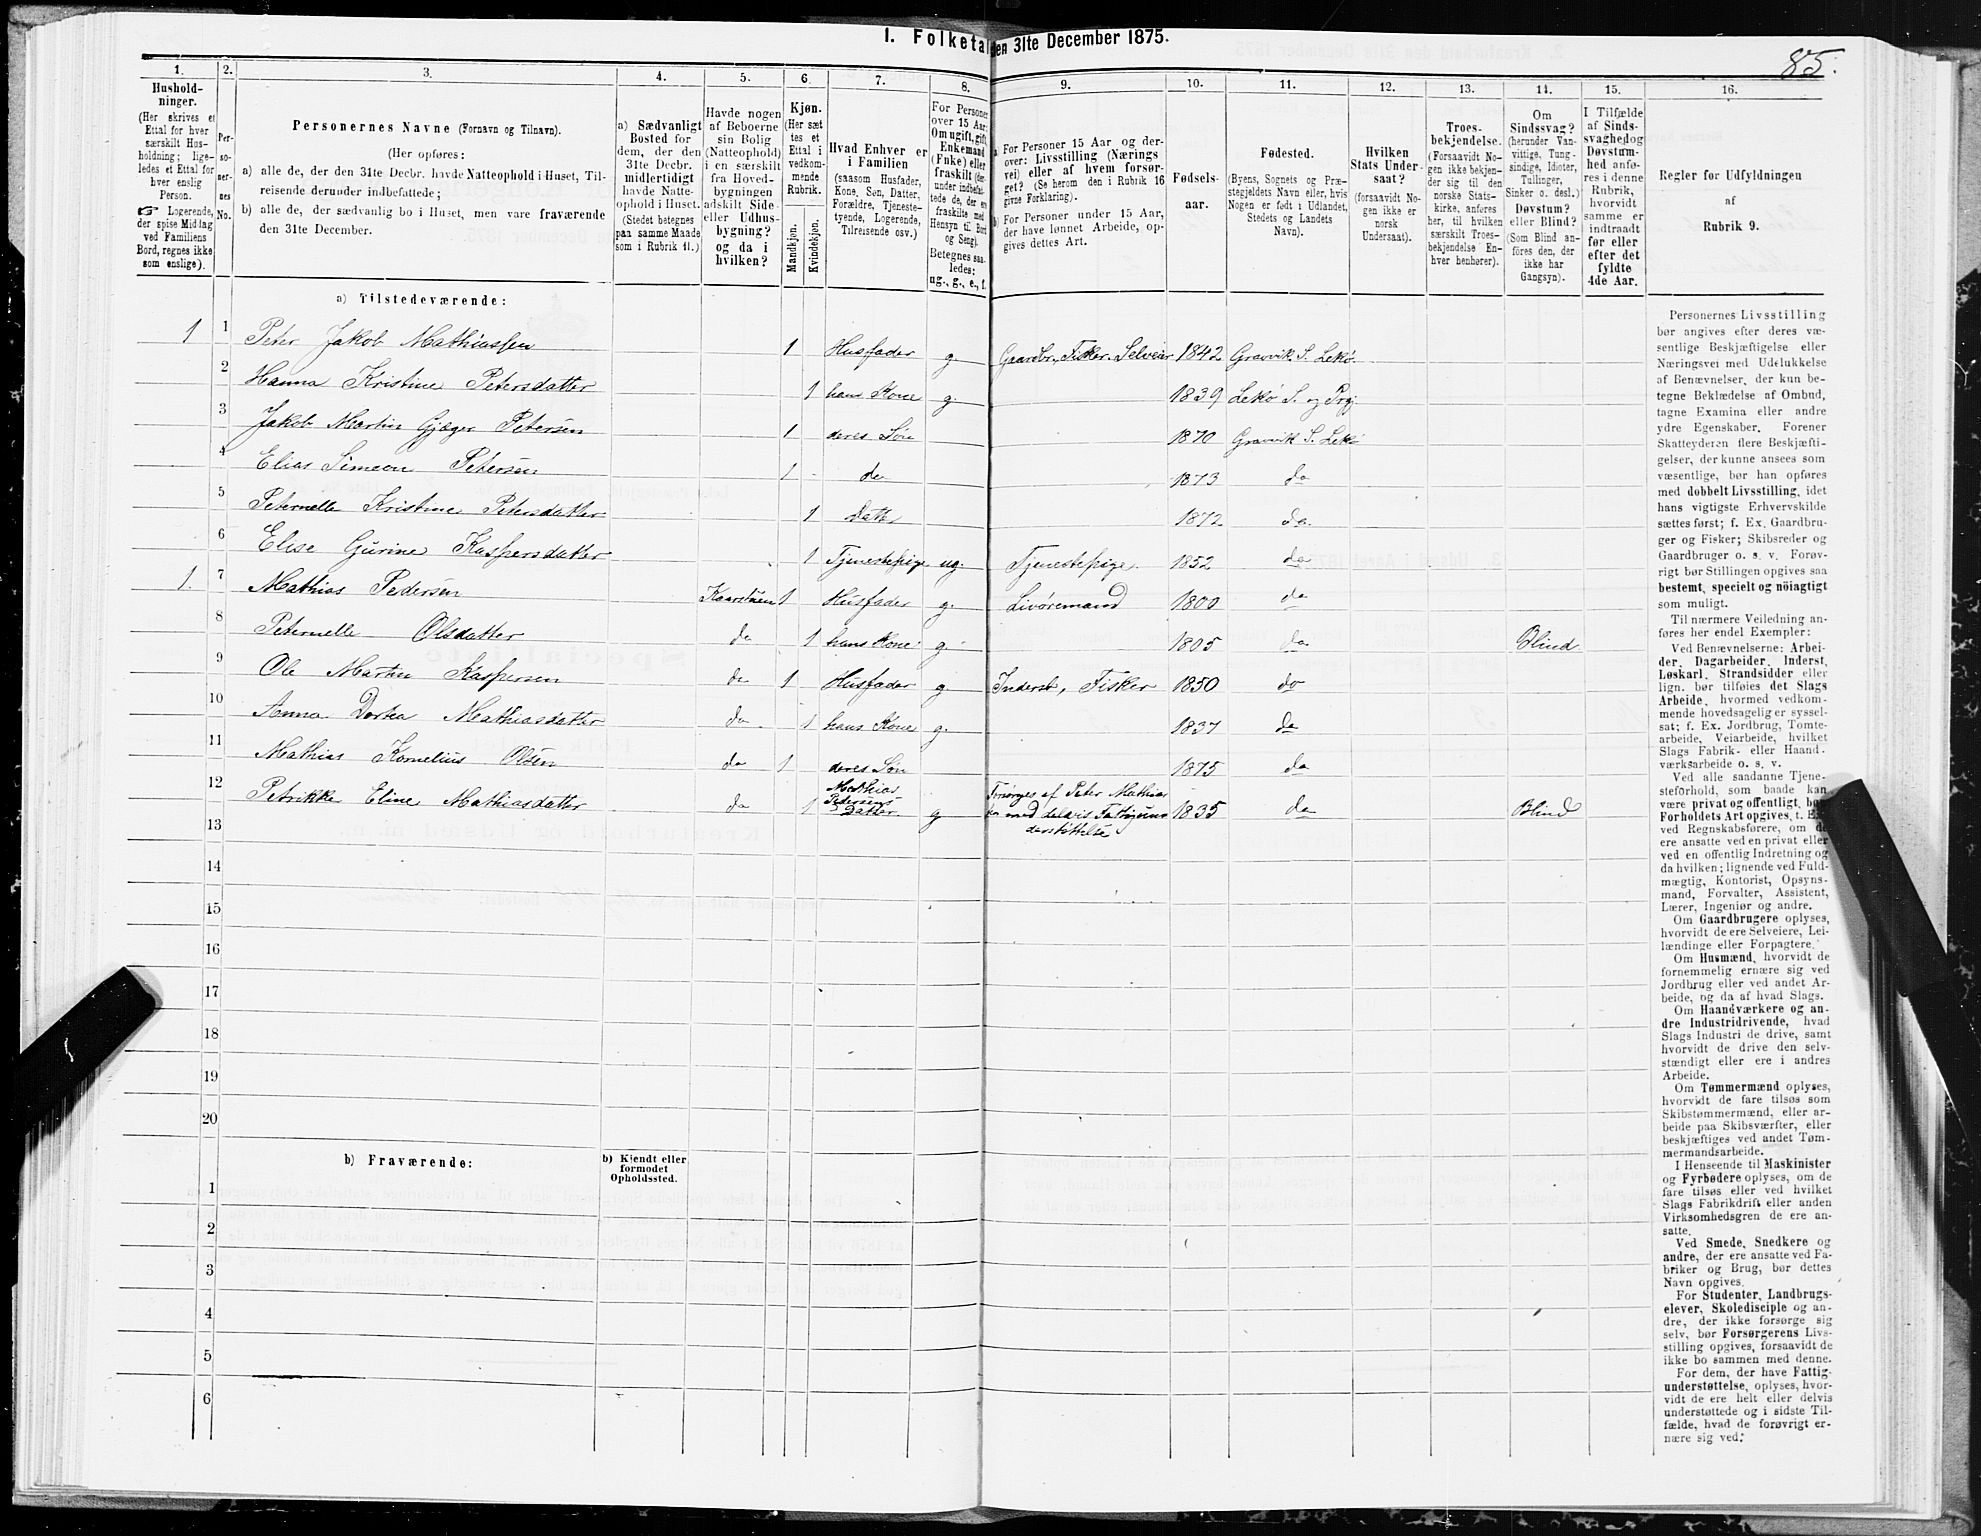 85.
I. Folketal den 31te December 1875.
1. 2. 3. 4. 5. 6. 7. 8. 9. 10. 11. 12. 13. 14. 15. 16.
Hushold-
ninger.
(Her skrives et
Ettal for hver
særskilt Hus-
holdning; lige-
ledes et Ettal for
hver enslig
Person.
☞ Logerende,
der spise Middag
ved Familiens
Bord, regnes ikke
som enslige).
Per-
so-
ner-
nes
No.
Personernes Navne (Fornavn og Tilnavn).
(Her opføres:
a) alle de, der den 31te Decbr. havde Natteophold i Huset, Til-
reisende derunder indbefattede;
b) alle de, der sædvanlig bo i Huset, men vare fraværende
den 31te December.
a) Sædvanligt
Bosted for
dem, der den
31te Decbr.
midlertidigt
havde Natte-
ophold i Huset.
(Stedet betegnes
paa samme Maade
som i Rubrik 11.)
Havde nogen
af Beboerne
sin Bolig
(Natteophold)
i en særskilt
fra Hoved-
bygningen
adskilt Side-
eller Udhus-
bygning?
og da i
hvilken?
Kjøn.
(Her sæt
tes et
Ettal i
vedkom-
mende
Rubrik.
Mandkjøn.
Kvindekjøn.
Hvad Enhver er
i Familien
(saasom Husfader,
Kone, Søn, Datter,
Forældre, Tjeneste-
tyende, Logerende,
Tilreisende osv.)
For Personer
over 15 Aar:
Om ugift, gift,
Enkemand
(Enke) eller
fraskilt (der-
under indbefat-
tede de, der ere
fraskilte med
Hensyn til Bord
og Seng).
Betegnes saa-
ledes:
ug., g., e., f.
a) For Personer 15 Aar og der-
over: Livsstilling (Nærings
vei) eller af hvem forsør-
get? (Se herom den i Rubrik 16
givne Forklaring).
b) For Personer under 15 Aar,
der have lønnet Arbeide, op-
gives dettes Art.
Fødsels-
aar.
Fødested.
(Byens, Sognets og Præ-
stegjeldets Navn eller, hvis
Nogen er født i Udlandet,
Stedets og Landets
Navn).
Hvilken
Stats Under-
saat?
(forsaavidt No-
gen ikke er
norsk
Undersaat).
Troes-
bekjendelse.
(Forsaavidt No-
gen ikke bekjen-
der sig til den
norske Stats-
kirke, anføres
her, til hvilken
særskilt Troes-
bekjendelse En-
hver henhører).
Om
Sindssvag?
(herunder Van-
vittige, Tung-
sindige, Idioter,
Tullinger,
Sinker o. desl.)
Døvstum?
eller Blind?
(Som Blind an-
føres den, der
ikke har
Gangsyn).
I Tilfælde
af Sinds-
svaghed og
Døvstum-
hed anfø-
res i denne
Rubrik,
hvorvidt
samme er
indtraadt
før eller
efter det
fyldte
4de Aar.
Regler for Udfyldningen
af
Rubrik 9.
a) Tilstedeværende:
1 1 Peter Jakob Mathiassen 1 Husfader g Gaardbr., Fisker. Selveier 1842 Gravvik S. Lekø.
2 Hanna Kristine Petersdatter 1 hans Kone g. 1839 Lekø S. og Prg.
3 Jakob Martin Gjæger Petersen 1 deres Søn 1870 Gravvik S. Lekø
4 Elias Simeon Petersen 1 do 1873 do
5 Peternelle Kristine Petersdatter 1 Datter 1872 do.
6 Elise Gurine Kaspersdatter 1 Tjenestepige ug. Tjenestepige. 1852 do
1. 7 Mathias Pedersen Kaarstuen 1 Husfader g. Livøremand 1800 do
8 Peternelle Olsdatter do 1 hans Kone g. 1805 do Blind
9 Ole Martin Kaspersen do 1 Husfader g Inderst, Fisker 1850 do
10 Anna Dortea Mathiasdatter do 1 hans Kone g. 1837 do
11 Mathias Kornelius Olsen do 1 deres Søn 1875 do
12 Petrikke Eline Mathiasdatter do 1 Mathias Pedersens Datter g Forsørges af Peter Mathias
sen med delvis Fattigun-
derstøttelse 1835 do Blind
13
14
15
16
17
18
19
20
b) Fraværende:
b) Kjendt eller
formodet
Opholdssted.
1
2
3
4
5
6
Personernes Livsstilling
bør angives efter deres væ-
sentlige Beskjæftigelse eller
Næringsvei med Udelukkelse
af Benævnelser, der kun be-
tegne Beklædelse af Ombud,
tagne Examina eller andre
ydre Egenskaber. Forener
Skatteyderen flere Beskjæfti-
gelser, der kunne ansees som
væsentlige, bør han opføres
med dobbelt Livsstilling, idet
hans vigtigste Erhvervskilde
sættes først; f. Ex. Gaardbru-
ger og Fisker; Skibsreder og
Gaardbruger o. s. v. Forøv-
rigt bør Stillingen opgives saa
bestemt, specielt og nöiagtigt
som muligt.
Til nærmere Veiledning an-
føres her endel Exempler:
Ved Benævnelserne: Arbei-
der, Dagarbeider, Inderst,
Løskarl, Strandsidder eller
lign. bør tilføies det Slags
Arbeide, hvormed vedkom-
mende hovedsagelig er syssel-
sat; f. Ex. Jordbrug, Tomte-
arbeide, Veiarbeide, hvilket
Slags Fabrik- eller Haand-
værksarbeide o. s. v.
Ved alle saadanne Tjene-
steforhold, som baade kan
være privat og offentligt, bør
Forholdets Art opgives, t. Ex.
ved Regnskabsførere, om de
ere ansatte ved en privat eller
ved en offentlig Indretning og
da hvilken; lignende ved Fuld-
mægtig, Kontorist, Opsyns-
mand, Forvalter, Assistent,
Lærer, Ingeniør og andre.
Om Gaardbrugere oplyses,
hvorvidt de ere Selveiere, Lei-
lændinge eller Forpagtere.
Om Husmænd, hvorvidt de
fornemmelig ernære sig ved
Jordbrug eller ved andet Ar-
beide, og da af hvad Slags.
Om Haandværkere og an-
dre Industridrivende, hvad
Slags Industri de drive, samt
hvorvidt de drive den selv-
stændigt eller ere i andres
Arbeide.
Om Tømmermænd oplyses,
hvorvidt de fare tilsøs som
Skibstømmermænd, eller ar-
beide paa Skibsværfter, eller
beskjæftiges ved andet Tøm-
mermandsarbeide.
I Henseende til Maskinister
og Fyrbødere oplyses, om de
fare tilsøs eller ved hvilket
Slags Fabrikdrift eller anden
Virksomhedsgren de ere an-
satte.
Ved Smede, Snedkere og
andre, der ere ansatte ved Fa-
briker og Brug, bør dettes
Navn opgives.
For Studenter, Landbrugs-
elever, Skoledisciple og an-
dre, der ikke forsørge sig
selv, bør Forsørgerens Livs-
stilling opgives, forsaavidt de
ikke bo sammen med denne.
For dem, der have Fattig-
understøttelse, oplyses, hvor-
vidt de ere helt eller delvis
understøttede og i sidste Til-
fælde, hvad de forøvrigt er-
nære sig ved.